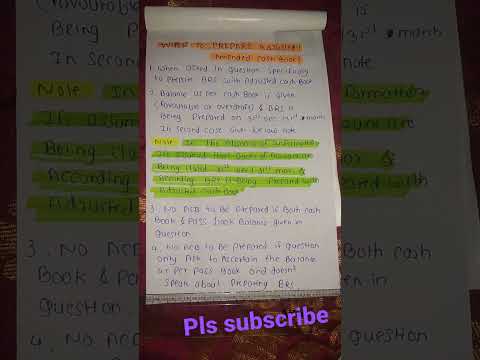 WHEN TO PREPARE ADJUSTED/
Amended cash Book?
1. When asked in question specifically
to prepare BRS with Adjusted cash Book
2. Balance as per cash Book is given
(favourable or overdraft) & BRS is
Being Prepared on 31st Dec or 31st March
In second case given below note
Note In the absence of information
It's assumed that Books of account are
Being closed 31st March &
Accordingly BRS is Being Prepared with
Adjusted cash Book
3. NO ACB to be Prepared if Both cash
Book & PASS Book Balance given in
Question
4. NO ACB to be Prepared if question
only Ask to Ascertain the Balance
as per Pass Book and doesn't
Speak about Preparing BRS.
Pls subscribe